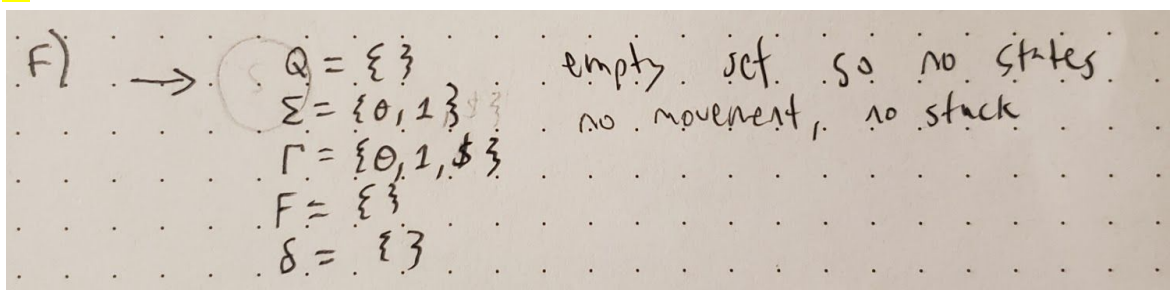 F) → Q = { } empty set so no states
Σ = {0, 1} no movement, no stack
Γ = {0, 1, $}
F = { }
δ = { }